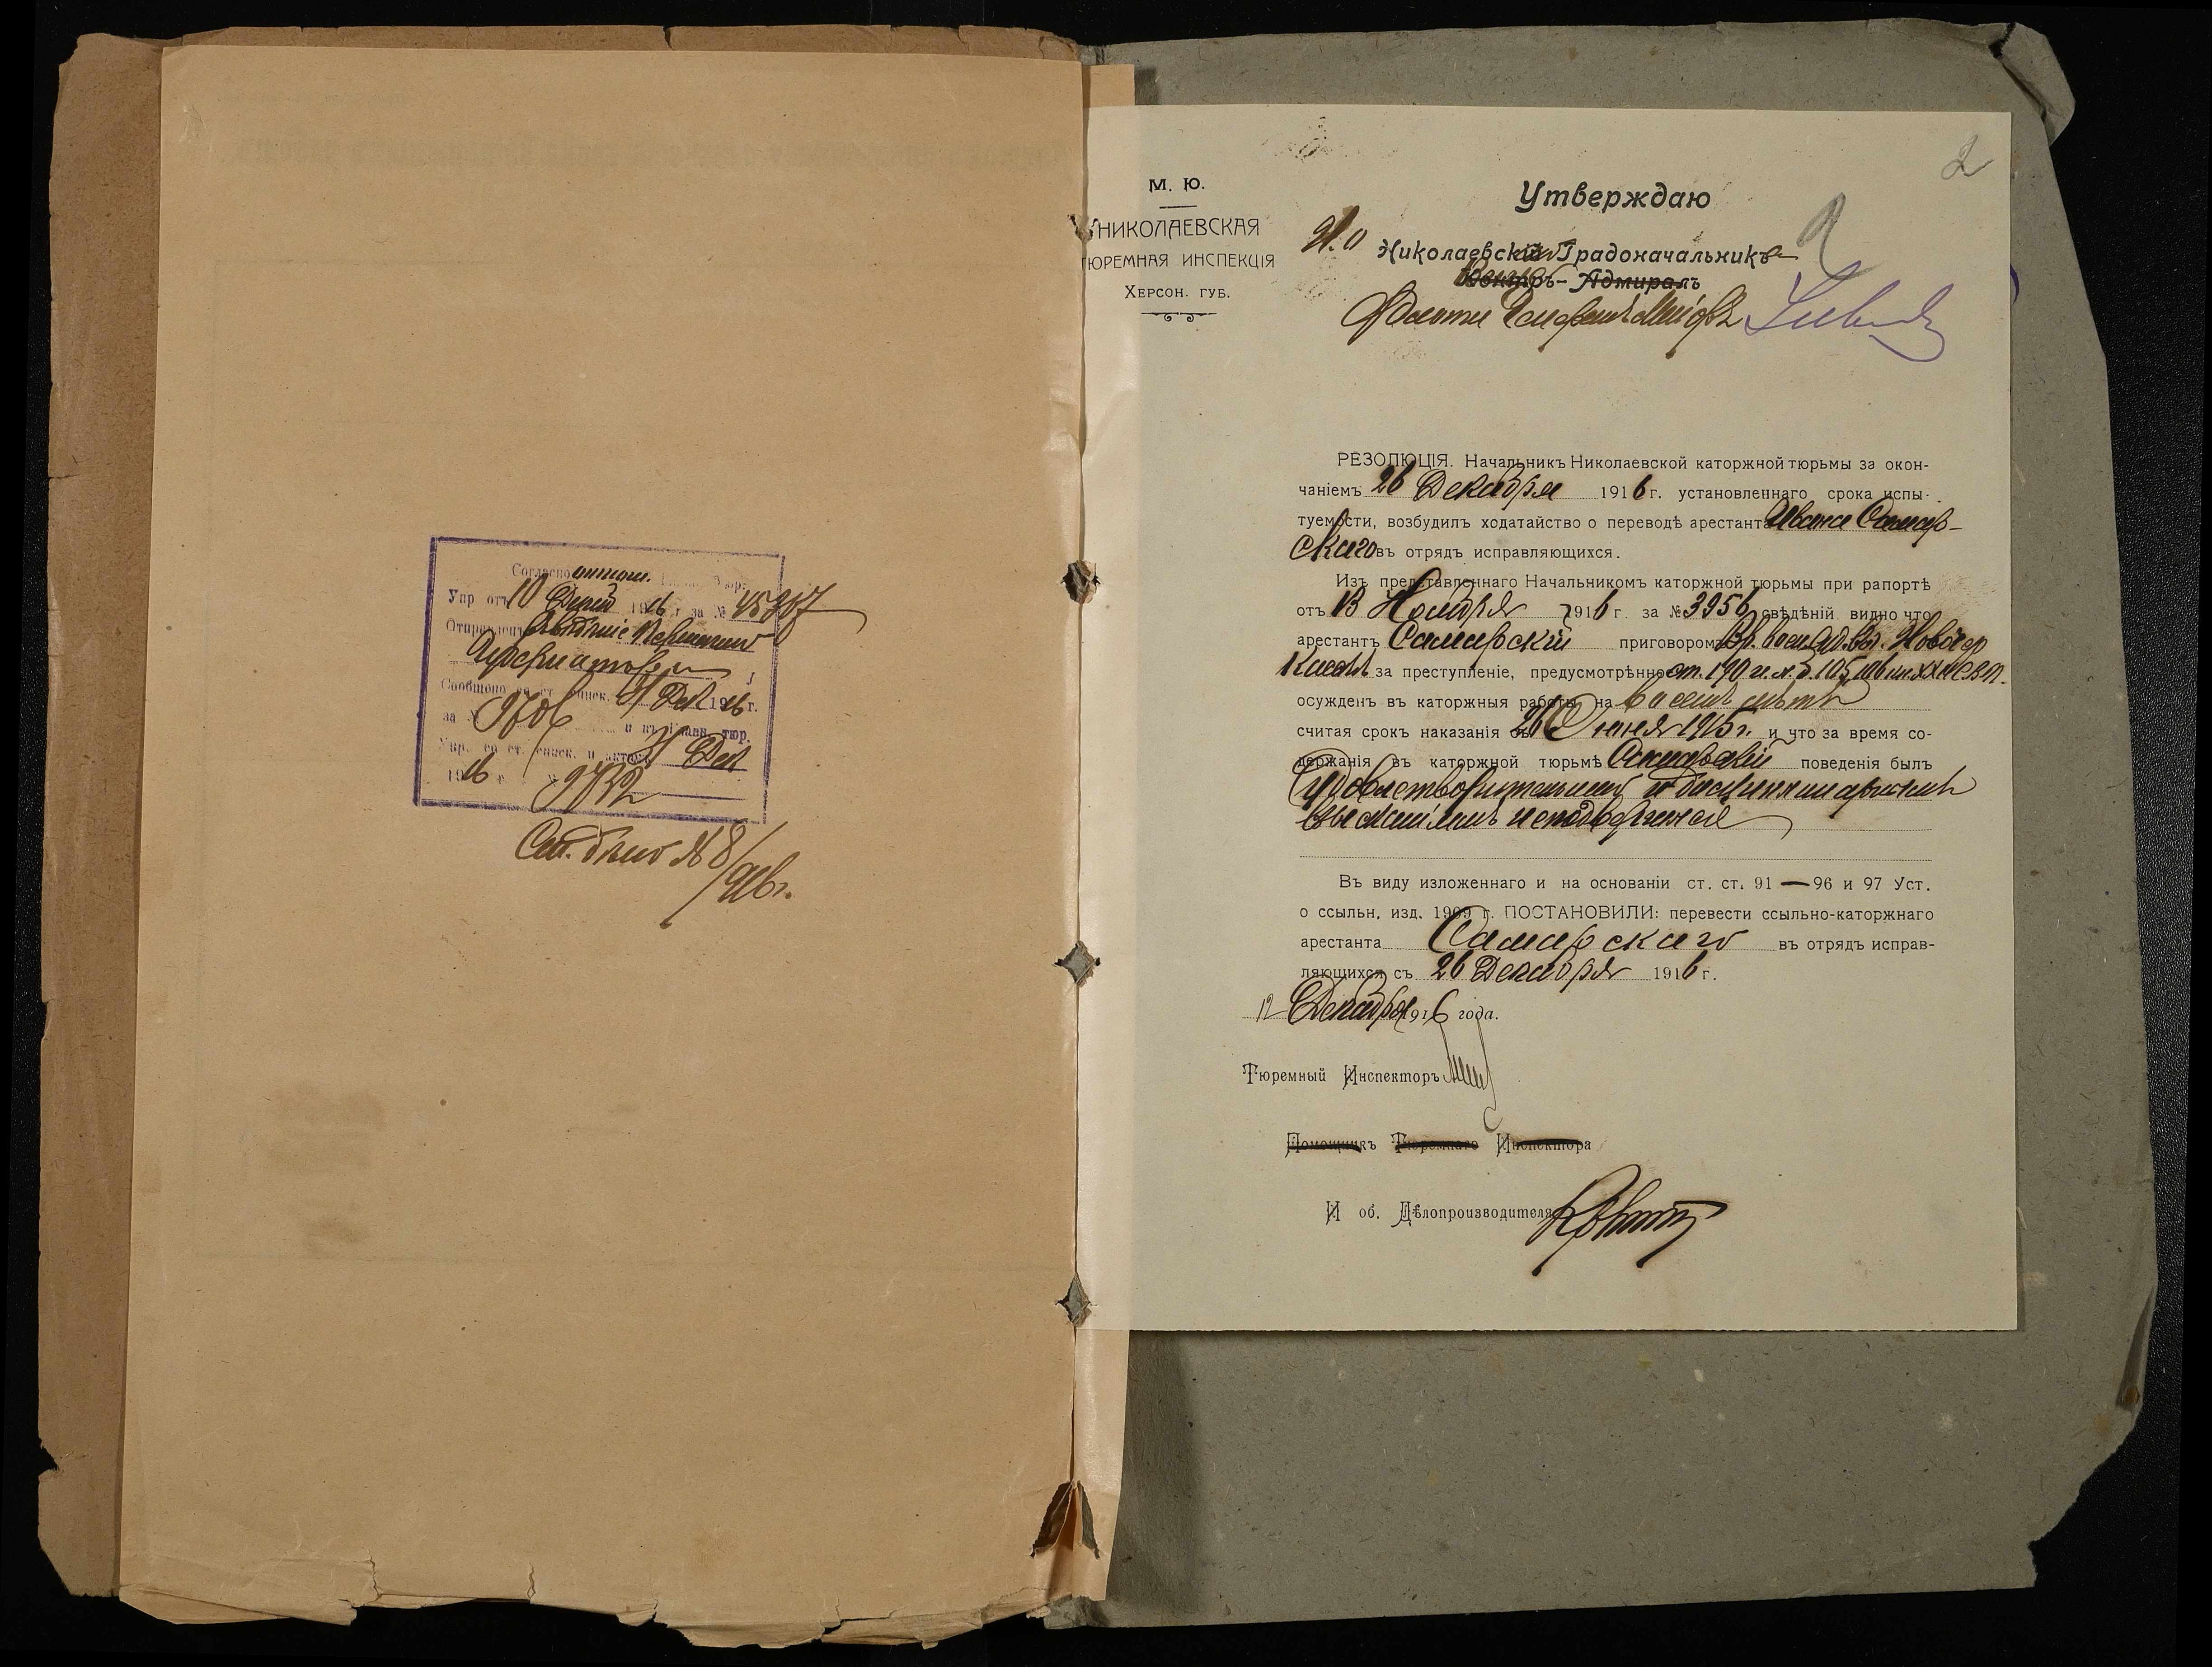 Согласно отнош.
Упр. отъ 10 Декаб 1916 г. за № 45307
Сообщено
за № 9706 и въ Главн. тюр.
Упр. со ст. списк. и
1916 г. 9732
См. дѣло № 8/916г.
2
М. Ю.
НИКОЛАЕВСКАЯ
ТЮРЕМНАЯ ИНСПЕКЦІЯ
ХЕРСОН. ГУБ.
Утверждаю
И.о Николаевскій Градоначальникъ
Контръ-Адмиралъ
РЕЗОЛЮЦІЯ. Начальникъ Николаевской каторжной тюрьмы за окон-
чаніемъ 26 Декабря 1916 г. установленнаго срока испы-
туемости, возбудилъ ходатайство о переводѣ арестанта Ивана Самар-
скаго въ отрядъ исправляющихся.
Изъ представленнаго Начальникомъ каторжной тюрьмы при рапортѣ
отъ 13 Ноября 1916 г. за № 3956 свѣдѣній видно что
арестантъ Самарскій приговоромъ Вр. воен.
за преступленіе, предусмотрѣнное ст.
осужденъ въ каторжныя работы на
считая срокъ наказанія съ 26 Іюня 1915 г. и что за время со-
держанія въ каторжной тюрьмѣ Самарскій поведенія былъ
удовлетворительнаго и дисциплинарнымъ
взысканіямъ неподвергался
Въ виду изложеннаго и на основаніи ст. ст. 91 — 96 и 97 Уст.
о ссыльн. изд. 1909 г. ПОСТАНОВИЛИ: перевести ссыльно-каторжнаго
арестанта Самарскаго въ отрядъ исправ-
ляющихся съ 26 Декабря 1916 г.
12 Декабря 1916 года.
Тюремный Инспекторъ
Помощникъ Тюремнаго Инспектора
И об. Дѣлопроизводителя